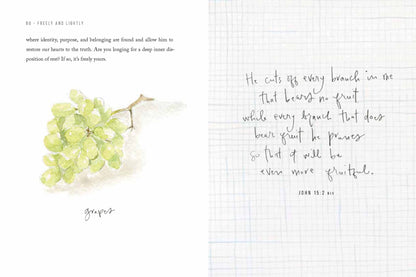 86 - FREELY AND LIGHTLY
where identity, purpose, and belonging are found and allow him to
restore our hearts to the truth. Are you longing for a deep inner dis-
position of rest? If so, it's freely yours.
grapes
He cuts off every branch in me
that bears no fruit
while every branch that does
bear fruit he prunes
so that it will be
even more fruitful.
JOHN 15:2 NIV